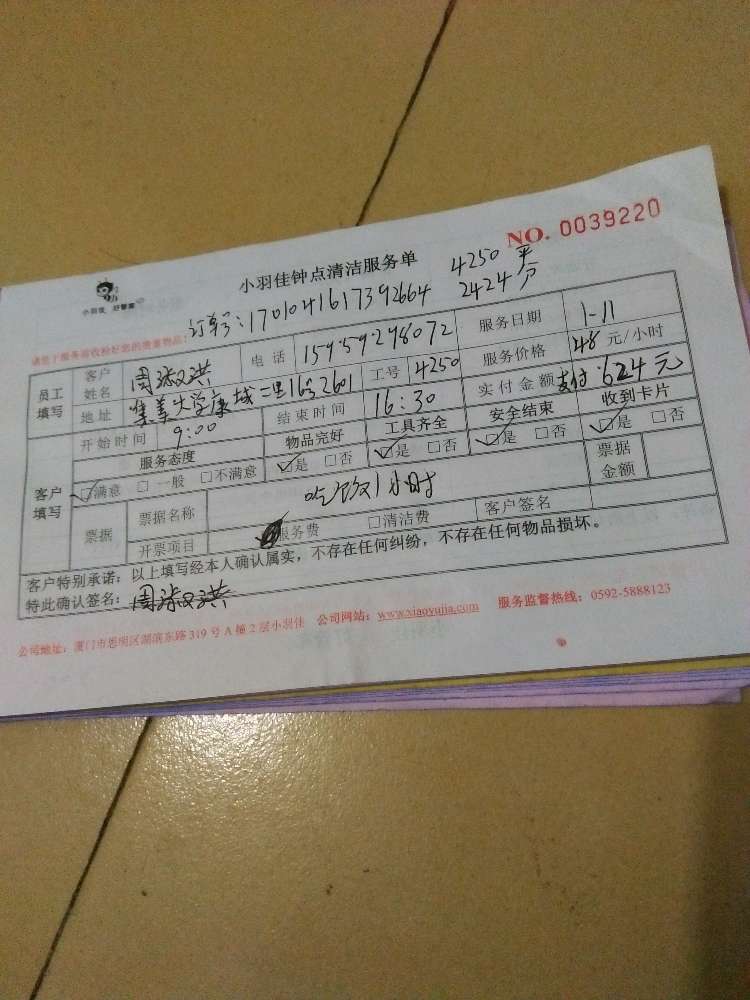 NO. 0039220
小羽佳 好管家
小羽佳钟点清洁服务单
4250 平
订单号:1701041617392664 2424 分
请您于服务前收检好您的贵重物品:
员工填写 客户姓名 电话 15959298072 服务日期 1-11
地址 集美大学康城二里16号2601 工号 4250 服务价格 48 元/小时
开始时间 9:00 结束时间 16:30 实付金额 支付:624元
客户填写 服务态度 物品完好 工具齐全 安全结束 收到卡片
☑满意 □一般 □不满意 ☑是 □否 ☑是 □否 ☑是 □否 ☑是 □否
票据 票据名称 吃饭1小时 票据金额
开票项目 服务费 □清洁费 客户签名
客户特别承诺:以上填写经本人确认属实,不存在任何纠纷,不存在任何物品损坏。
特此确认签名:
公司地址:厦门市思明区湖滨东路319号A幢2层小羽佳 公司网站:www.xiaoyujia.com 服务监督热线:0592-5888123